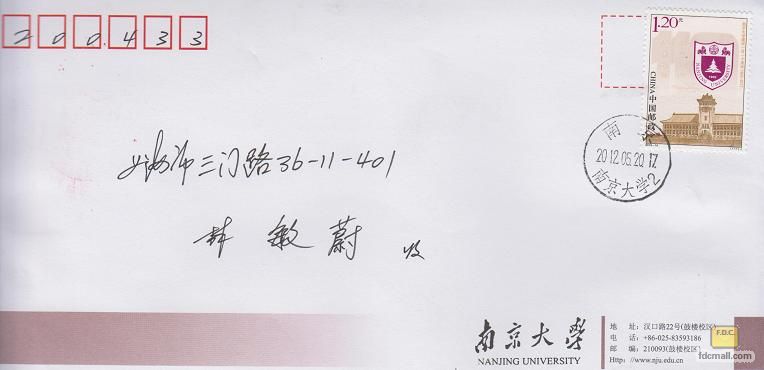 200433
1.20元
NANJING UNIVERSITY
1902
CHINA 中国邮政
南京
2012.05.20.17
南京大学2
上海市三门路36-11-401
林敏蔚 收
南京大學
NANJING UNIVERSITY
地 址：汉口路22号(鼓楼校区)
电 话：+86-025-83593186
邮 编：210093(鼓楼校区)
Http：//www.nju.edu.cn
F.D.C.
fdcmall.com